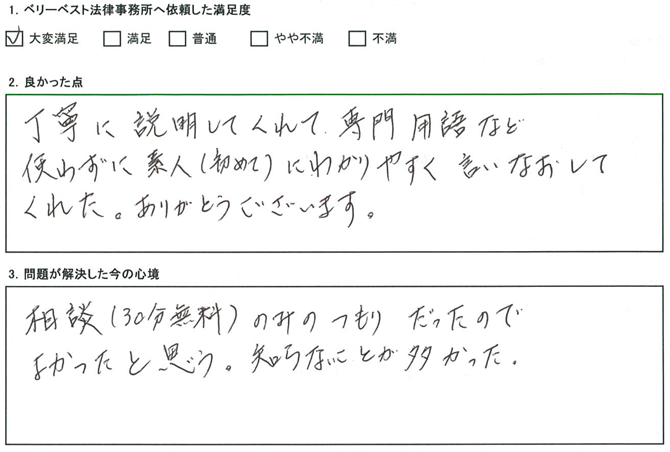 1. ベリーベスト法律事務所へ依頼した満足度
☑ 大変満足 □ 満足 □ 普通 □ やや不満 □ 不満
2. 良かった点
丁寧に説明してくれて、専門用語など
使わずに素人(初めて)にわかりやすく言いなおして
くれた。ありがとうございます。
3. 問題が解決した今の心境
相談(30分無料)のみのつもりだったので
よかったと思う。知らないことが多かった。